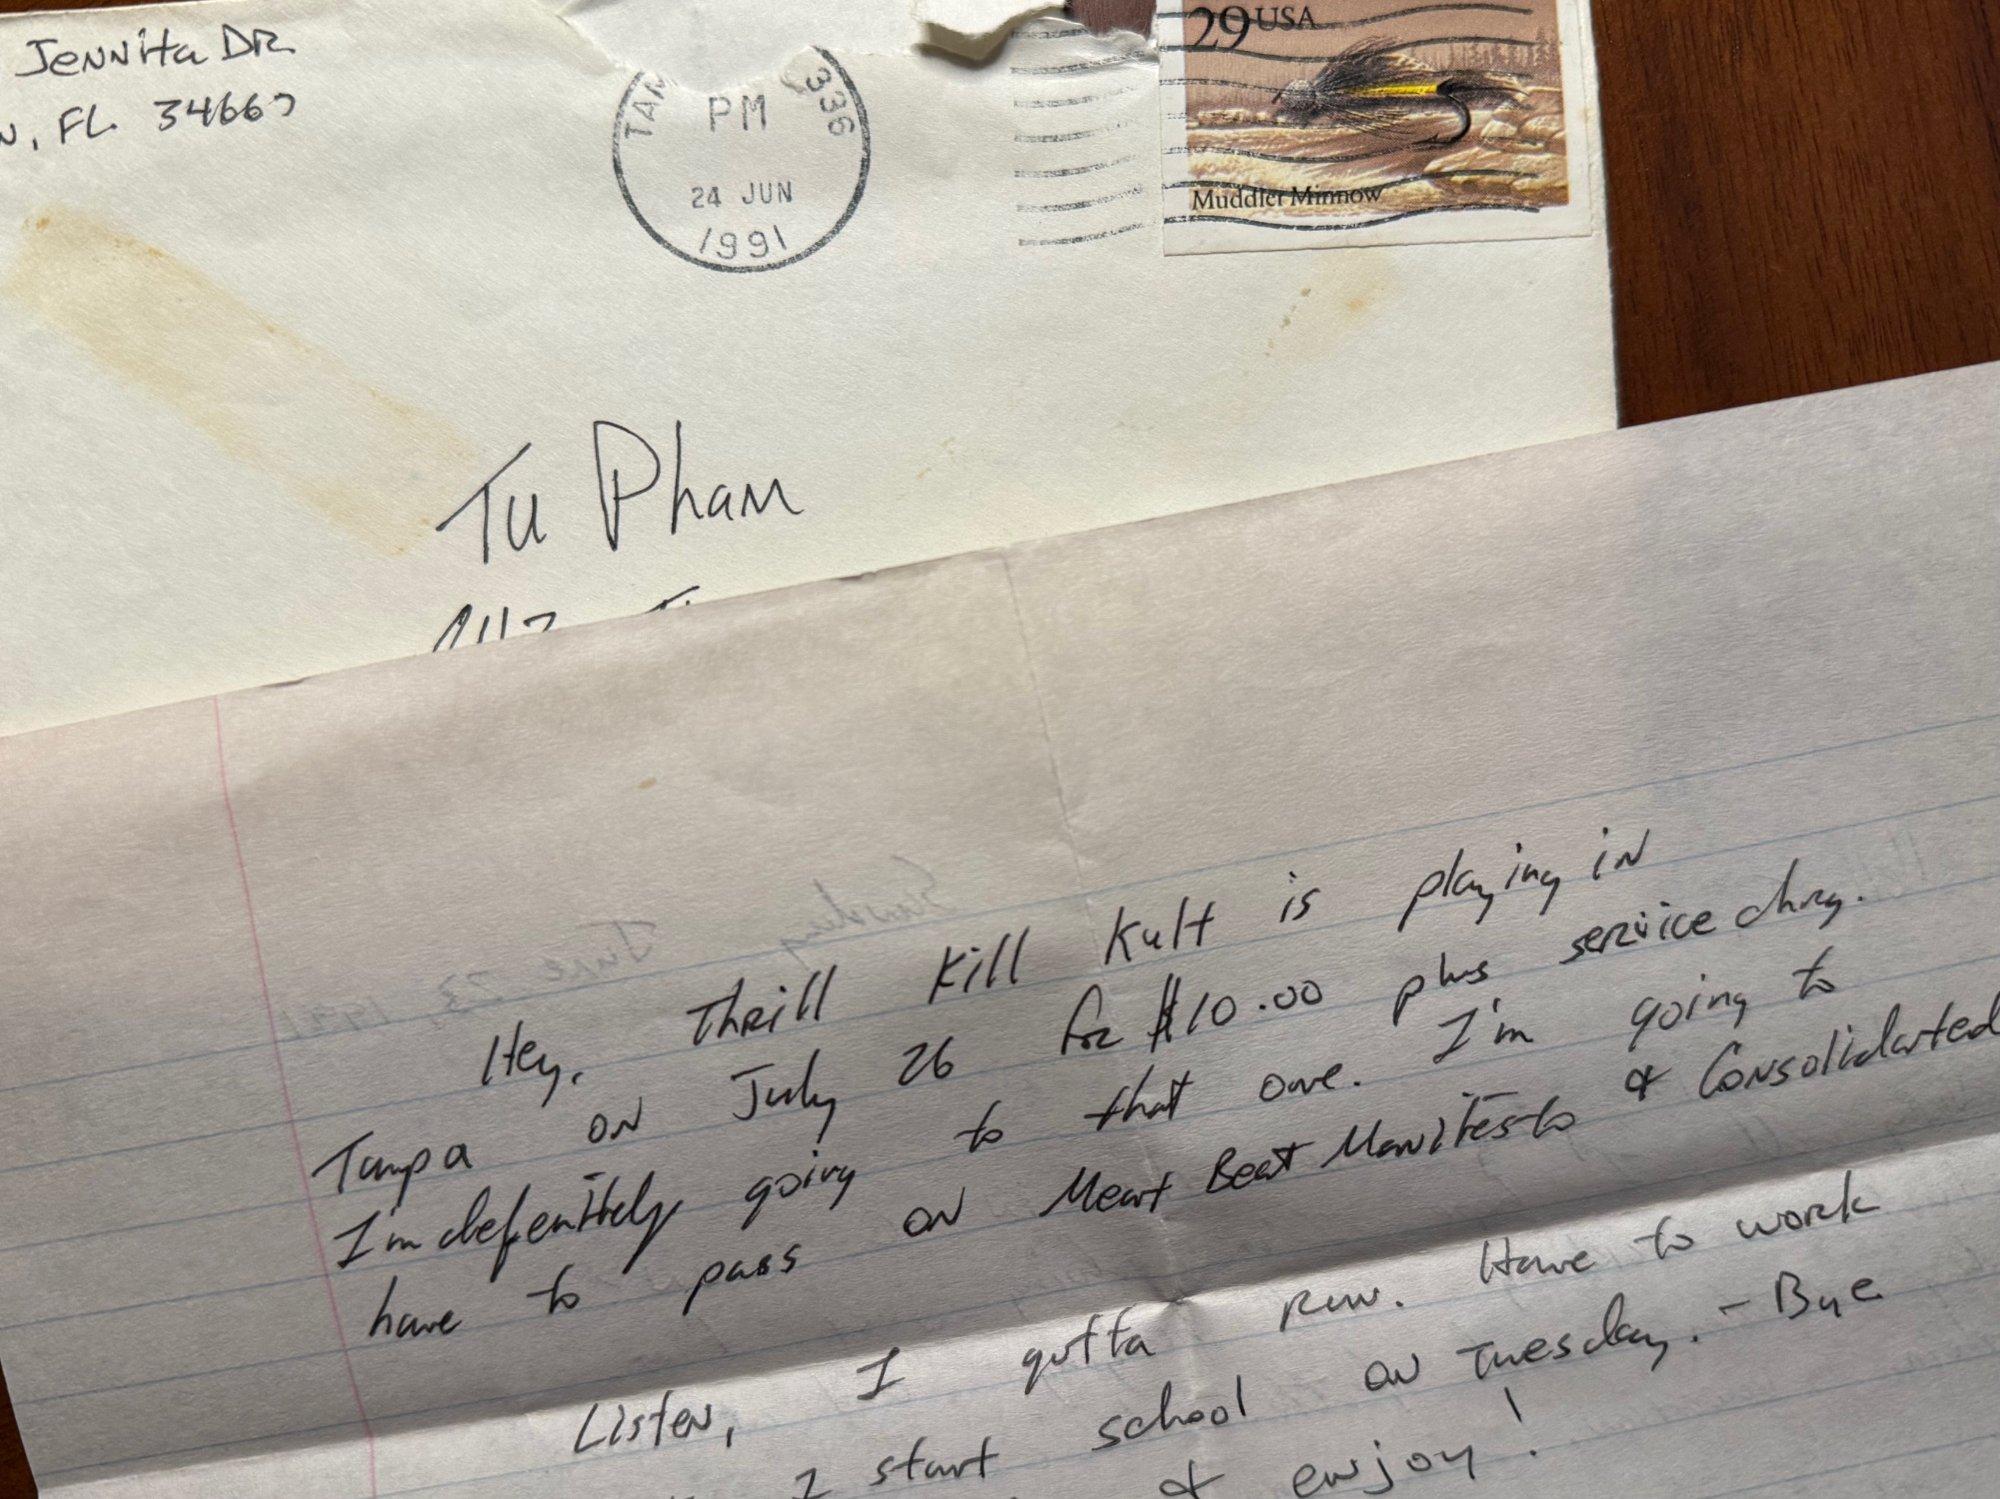 Jennita DR
, FL. 34667
TAM 336
PM
24 JUN
1991
29 USA
Muddler Minnow
Tu Pham
Sunday June 23, 1991
Hey, Thrill Kill Kult is playing in
Tampa on July 26 for $10.00 plus service chrg.
I'm defenitely going to that one. I'm going to
have to pass on Meat Beat Manifesto & Consolidated
Listen, I gotta run. Have to work
I start school on Tuesday. - Bye
& enjoy!